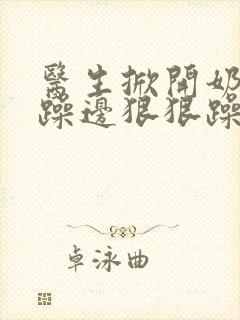 醫生掀開奶
躁邊狠狠躁
卓泳曲